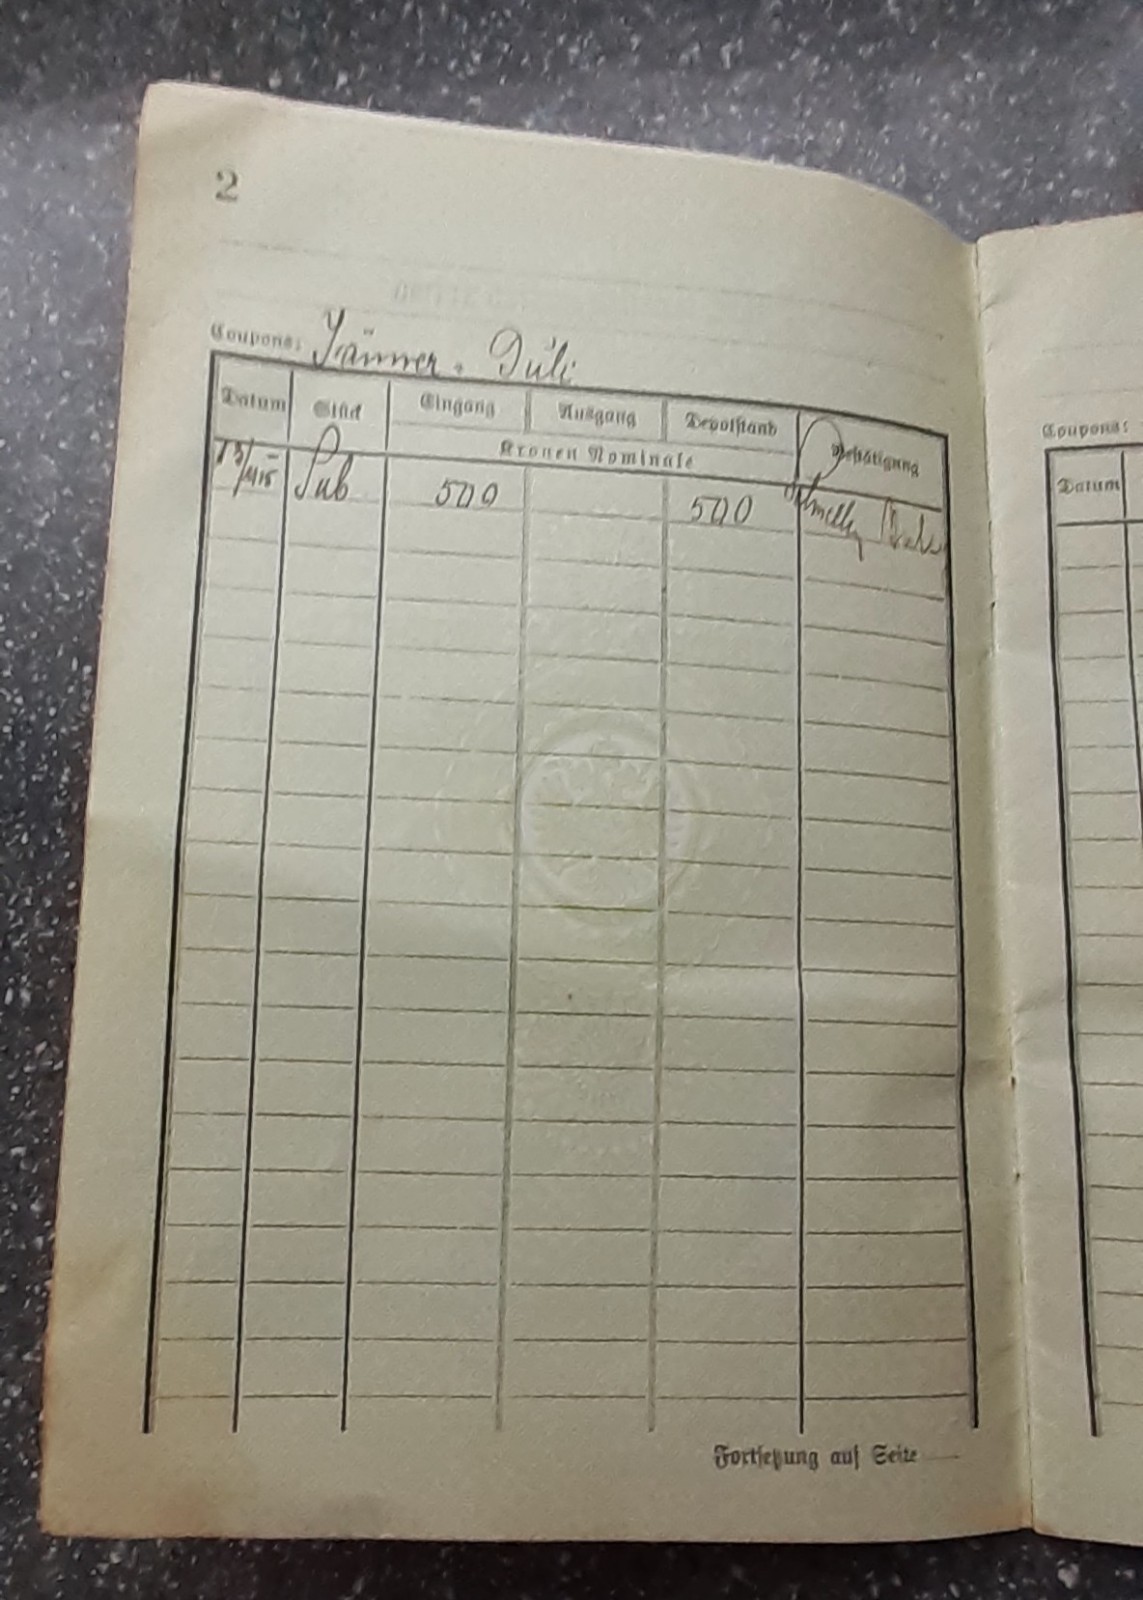 2
Coupons: Jänner - Juli
Datum Stück Eingang Ausgang Depotstand Bestätigung
Kronen Nominale
500 500
Fortsetzung auf Seite
Coupons:
Datum